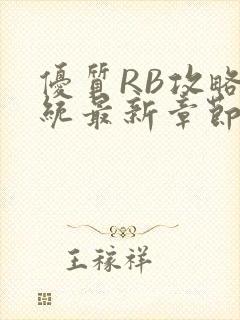 優質RB攻略
統最新章節
王稼祥